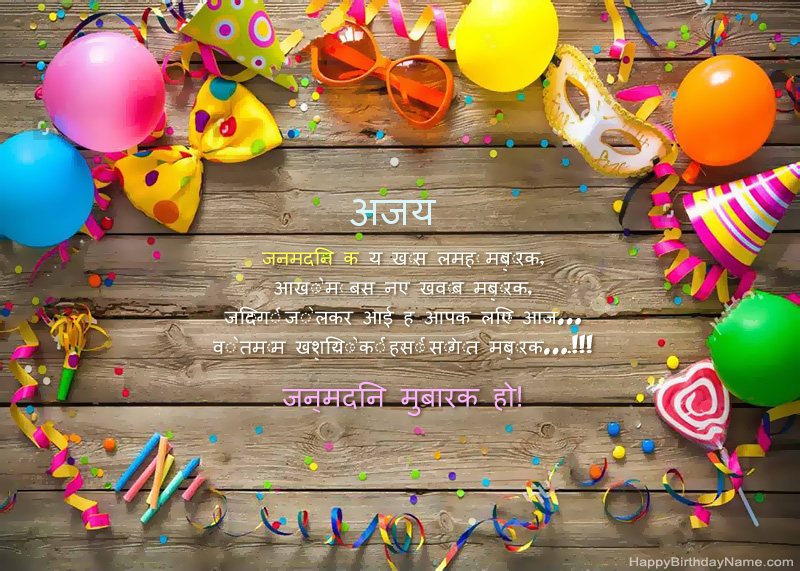 अजय
जनमदनि क य खास लमह मुबारक,
आखों म बस नए खवाब मुबारक,
जदिगी जो लकर आई ह आपक लएि आज...
वो तमाम खुशयिों की हसी सौगात मुबारक...!!!
जन्मदनि मुबारक हो!
HappyBirthdayName.com